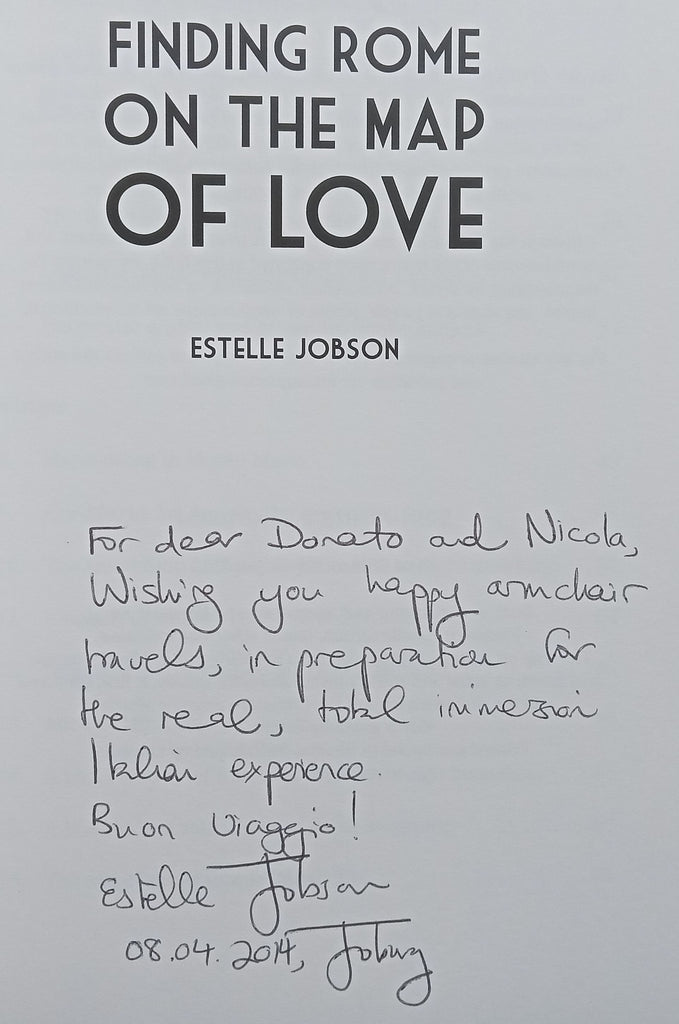 FINDING ROME
ON THE MAP
OF LOVE
ESTELLE JOBSON
For dear Donato and Nicola,
Wishing you happy armchair
travels, in preparation for
the real, total immersion
Italian experience.
Buon Viaggio!
Estelle Jobson
08.04.2014, Joburg